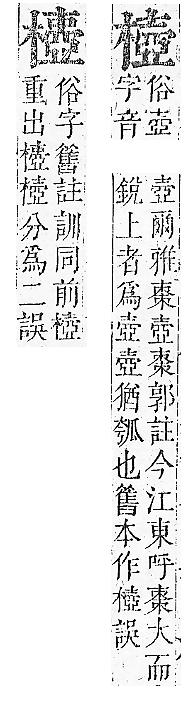 俗壺
字音
壺爾雅棗壺棗郭註今江東呼棗大而
銳上者為壺壺猶瓠也舊本作誤
俗字舊註訓同前
重出分為二誤